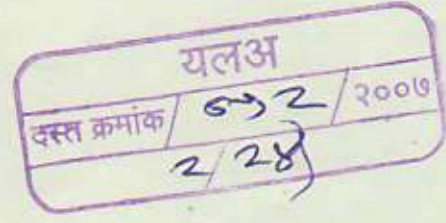 यलअ
दस्त क्रमांक / / २००७
२/२४